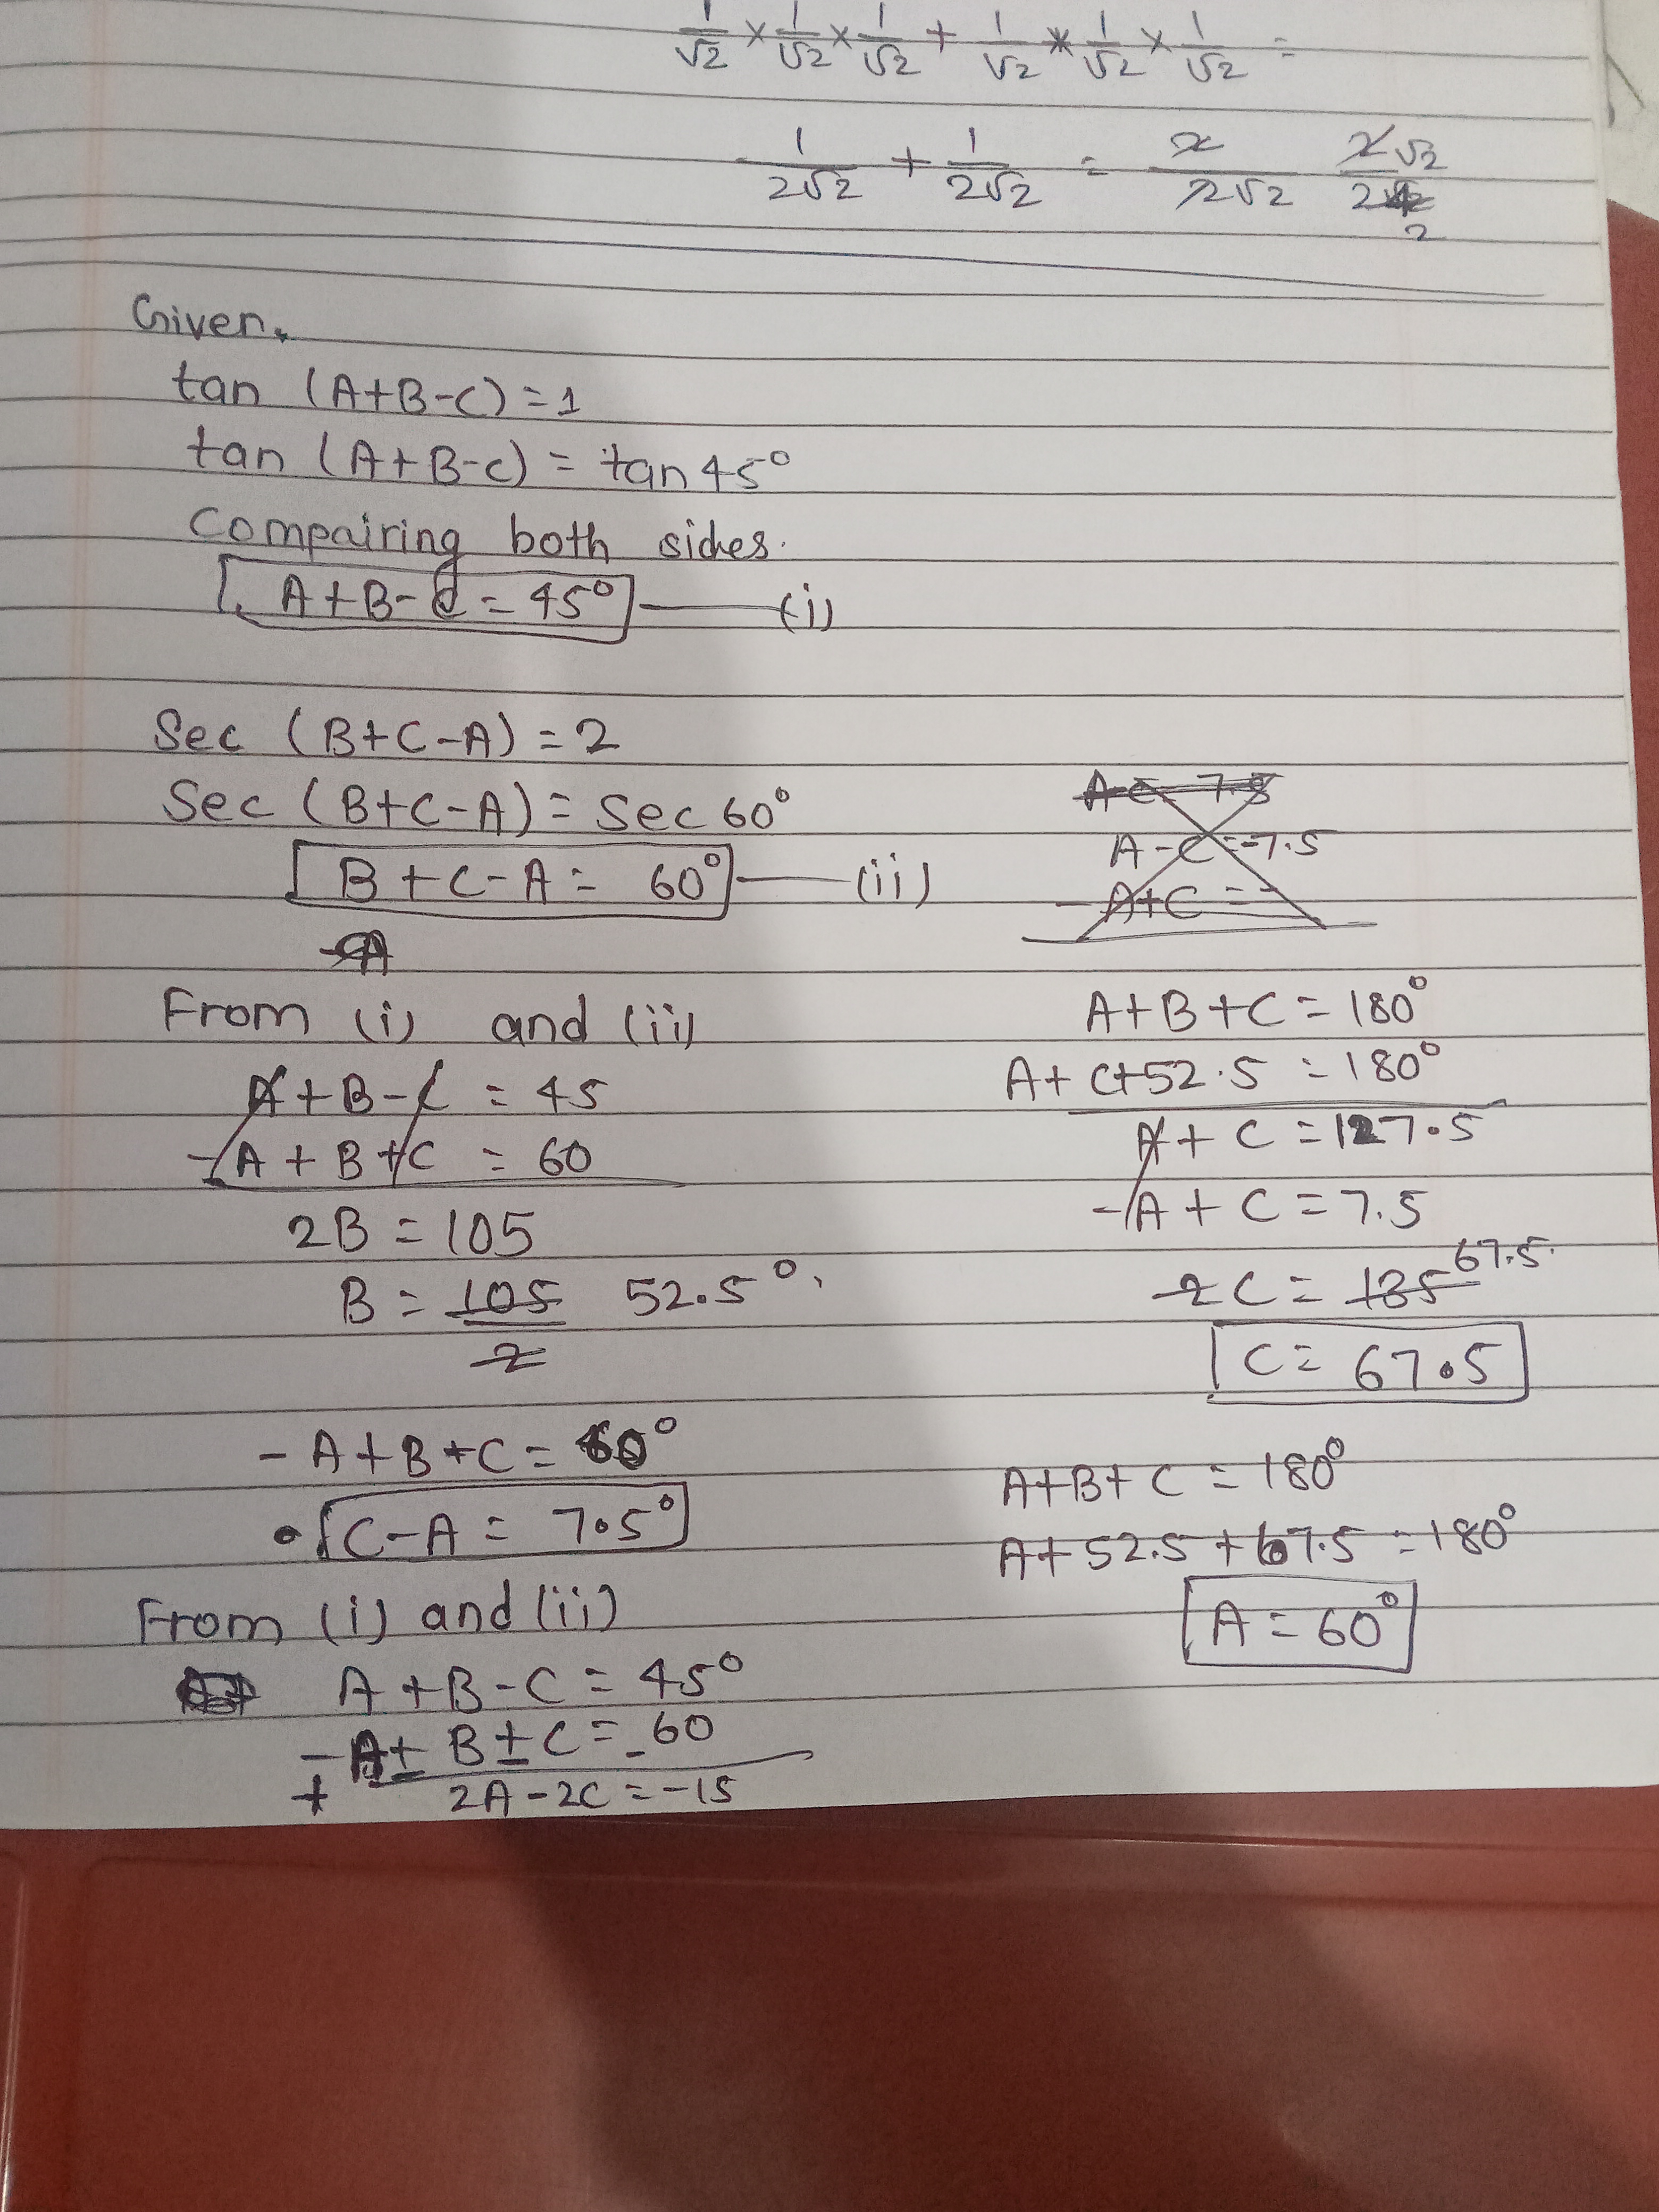 1/√2 × 1/√2 × 1/√2 + 1/√2 × 1/√2 × 1/√2 =
1/2√2 + 1/2√2 = 2/2√2 2√2/2
2
Given.
tan (A+B-C) = 1
tan (A+B-C) = tan 45°
Compairing both sides.
A+B-C = 45° —— (i)
Sec (B+C-A) = 2
Sec (B+C-A) = Sec 60°
B+C-A = 60° —— (ii)
From (i) and (ii)
A+B-C = 45
-A+B+C = 60
2B = 105
B = 105/2 52.5°
-A+B+C = 60°
C-A = 7.5°
From (i) and (ii)
A+B-C = 45°
-A± B±C = -60
+
2A-2C = -15
A-C 7.5
A-C = -7.5
-A+C = -
A+B+C = 180°
A+C+52.5 = 180°
A+C = 127.5
-A+C = 7.5
2C = 135 67.5
C = 67.5
A+B+C = 180°
A+52.5+67.5 = 180°
A = 60°